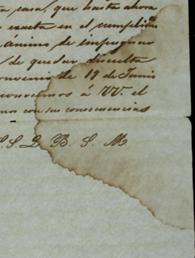 casa, que hasta ahora
exacta en el cumplim
animo de impugnar
de quedar disuelta
convenio de 19 de Junio
convenimos á VV. el
con sus consecuencias
S. S. Q. B. S. M